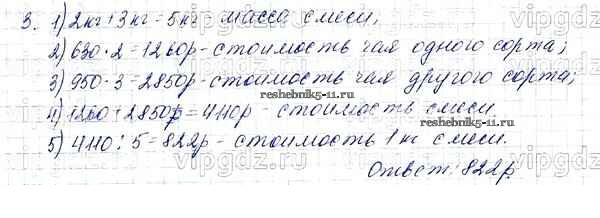 3. 1) 2кг + 3кг = 5кг масса смеси;
2) 630 · 2 = 1260р - стоимость чая одного сорта;
3) 950 · 3 = 2850р - стоимость чая другого сорта;
reshebnik5-11.ru
4) 1260 + 2850р = 4110р - стоимость смеси.
reshebnik5-11.ru
5) 4110 : 5 = 822р - стоимость 1 кг смеси.
Ответ: 822р.
vipgdz.ru